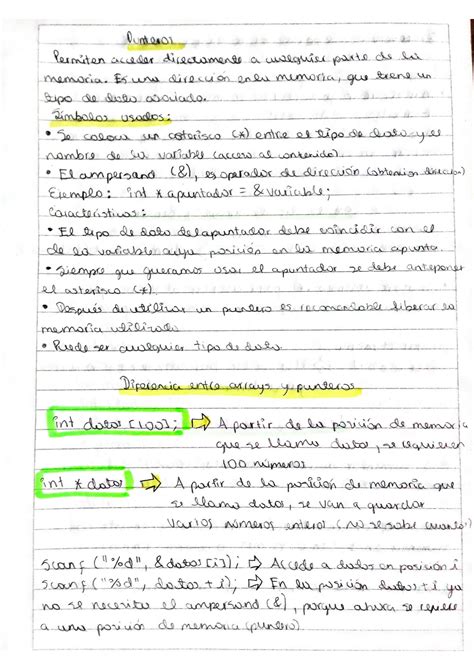 Punteros
Permiten acceder directamente a cualquier parte de la
memoria. Es una dirección en la memoria, que tiene un
tipo de dato asociado.
Símbolos usados:
• Se coloca un asterisco (*) entre el tipo de dato y el
nombre de su variable (acceso al contenido).
• El ampersand (&), es operador de dirección (obtención dirección)
Ejemplo: int * apuntador = & variable;
Características:
• El tipo de dato del apuntador debe coincidir con el
de la variable cuya posición en la memoria apunta.
• Siempre que queramos usar el apuntador se debe anteponer
el asterisco (*).
• Después de utilizar un puntero es recomendable liberar la
memoria utilizada
• Puede ser cualquier tipo de dato.
Diferencia entre arrays y punteros
int datos [100]; ⇨ A partir de la posición de memoria
que se llama datos, se requieren
100 números
int * datos ⇨ A partir de la posición de memoria que
se llama datos, se van a guardar
varios números enteros (no se sabe cuantos)
scanf ("%d", &datos[i]); ⇨ Accede a datos en posición i
scanf ("%d", datos + i); ⇨ En la posición datos + i ya
no se necesita el ampersand (&), porque ahora se refiere
a una posición de memoria (puntero)